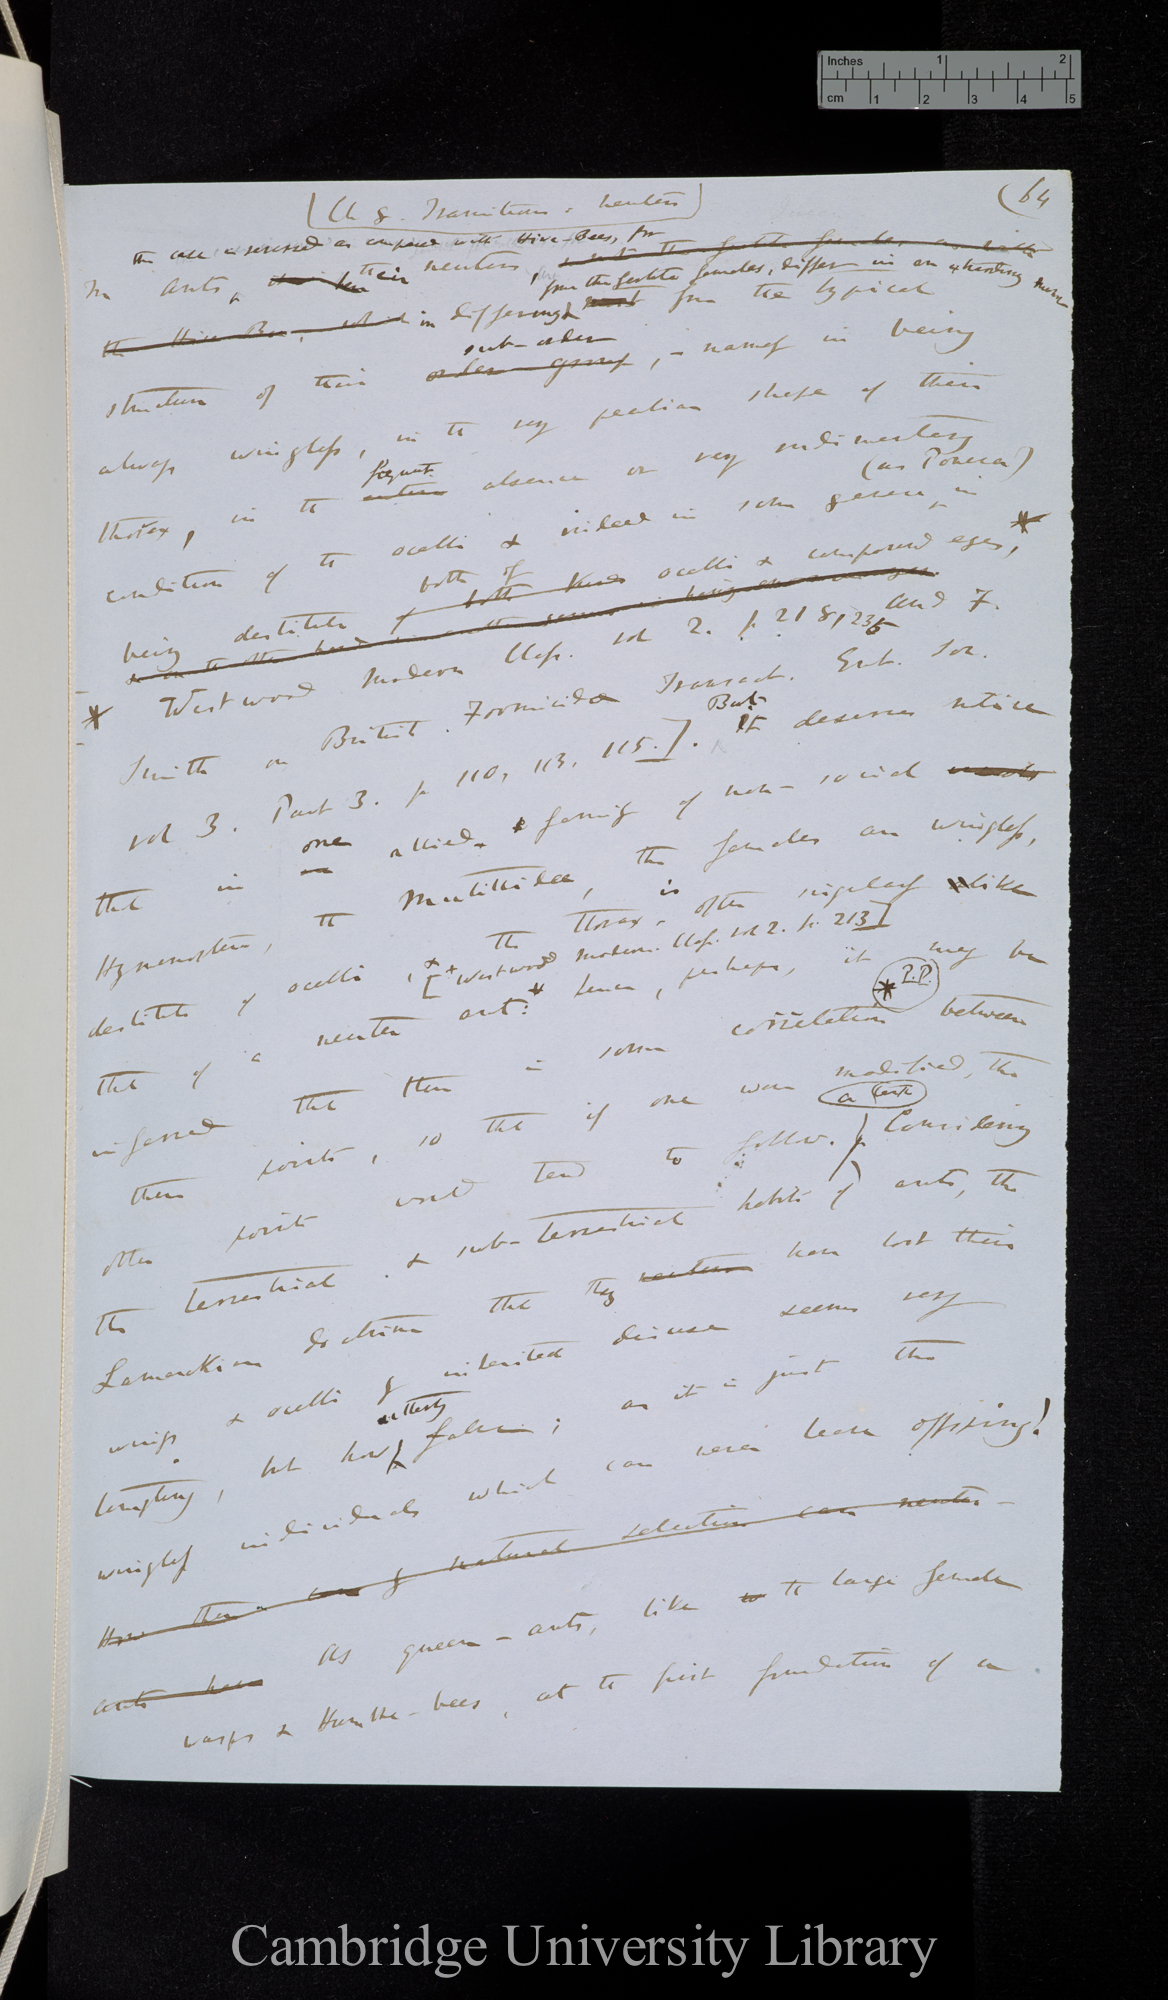 Inches 1 2
cm 1 2 3 4 5
(Ch 8. Transitions. neuters)
(64
the case is reversed as compared with Hive-Bees, for
In ants, their neuters,
from the fertile females, differ in an extraordinary manner
the Hive Bee, which in differing most from the typical
sub-order
structure of their order group, - namely in being
always wingless, in the very peculiar shape of their
frequent
thorax, in the entire absence or very rudimentary
(as Ponera)
condition of the ocelli & indeed in some genera, in
both of
being destitute of both kinds ocelli & compound eyes, *
& on the other hand in
* Westwood Modern Class. vol 2. p. 218, 235 and F.
Smith on British Formicidae Transact. Ent. Soc.
vol 3. Part 3. p 110, 113, 115.]. But it deserves notice
one
that in an allied family of non-social
Hymenoptera, the Mutillidae, the females are wingless,
destitute of ocelli, & the thorax is often singularly like
[* Westwood Modern. Class. vol 2. p. 213]
that of a neuter ant:* hence, perhaps, it may be
* P.P.
inferred that there is some correlation between
these points, so that if one were modified, the
a Text
other points would tend to follow.) Considering
the terrestrial & sub-terrestrial habits of ants, the
Lamarckian doctrine that they neuters have lost their
wings & ocelli by inherited disuse seems very
utterly
tempting, but how false; as it is just the
wingless individuals which can never leave offspring!
How then can by natural selection can neuter-
ants have As queen-ants, like to the large female
wasps & Humble-bees, at the first foundation of a
Cambridge University Library